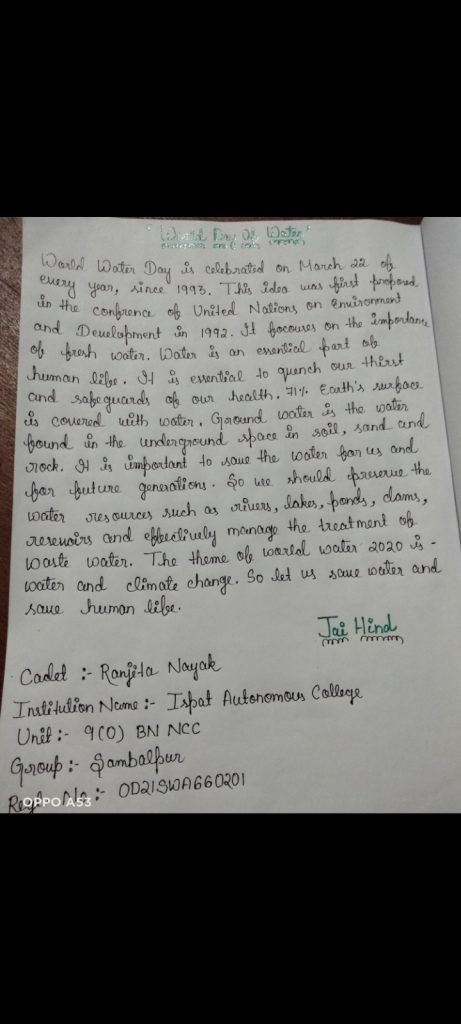 "World Day Of Water"
World Water Day is celebrated on March 22 of
every year, since 1993. This idea was first proposed
in the confrence of United Nations on Environment
and Development in 1992. It focouses on the importance
of fresh water. Water is an essential part of
human life. It is essential to quench our thirst
and safeguards of our health. 71% Earth's surface
is covered with water. Ground water is the water
found in the underground space in soil, sand and
rock. It is important to save the water for us and
for future generations. So we should preserve the
water resources such as rivers, lakes, ponds, dams,
reservoirs and effectively manage the treatment of
waste water. The theme of world water 2020 is -
water and climate change. So let us save water and
save human life.
Jai Hind
Cadet :- Ranjita Nayak
Institution Name :- Ispat Autonomous College
Unit :- 9(O) BN NCC
Group :- Sambalpur
:- OD21SWA660201
OPPO A53